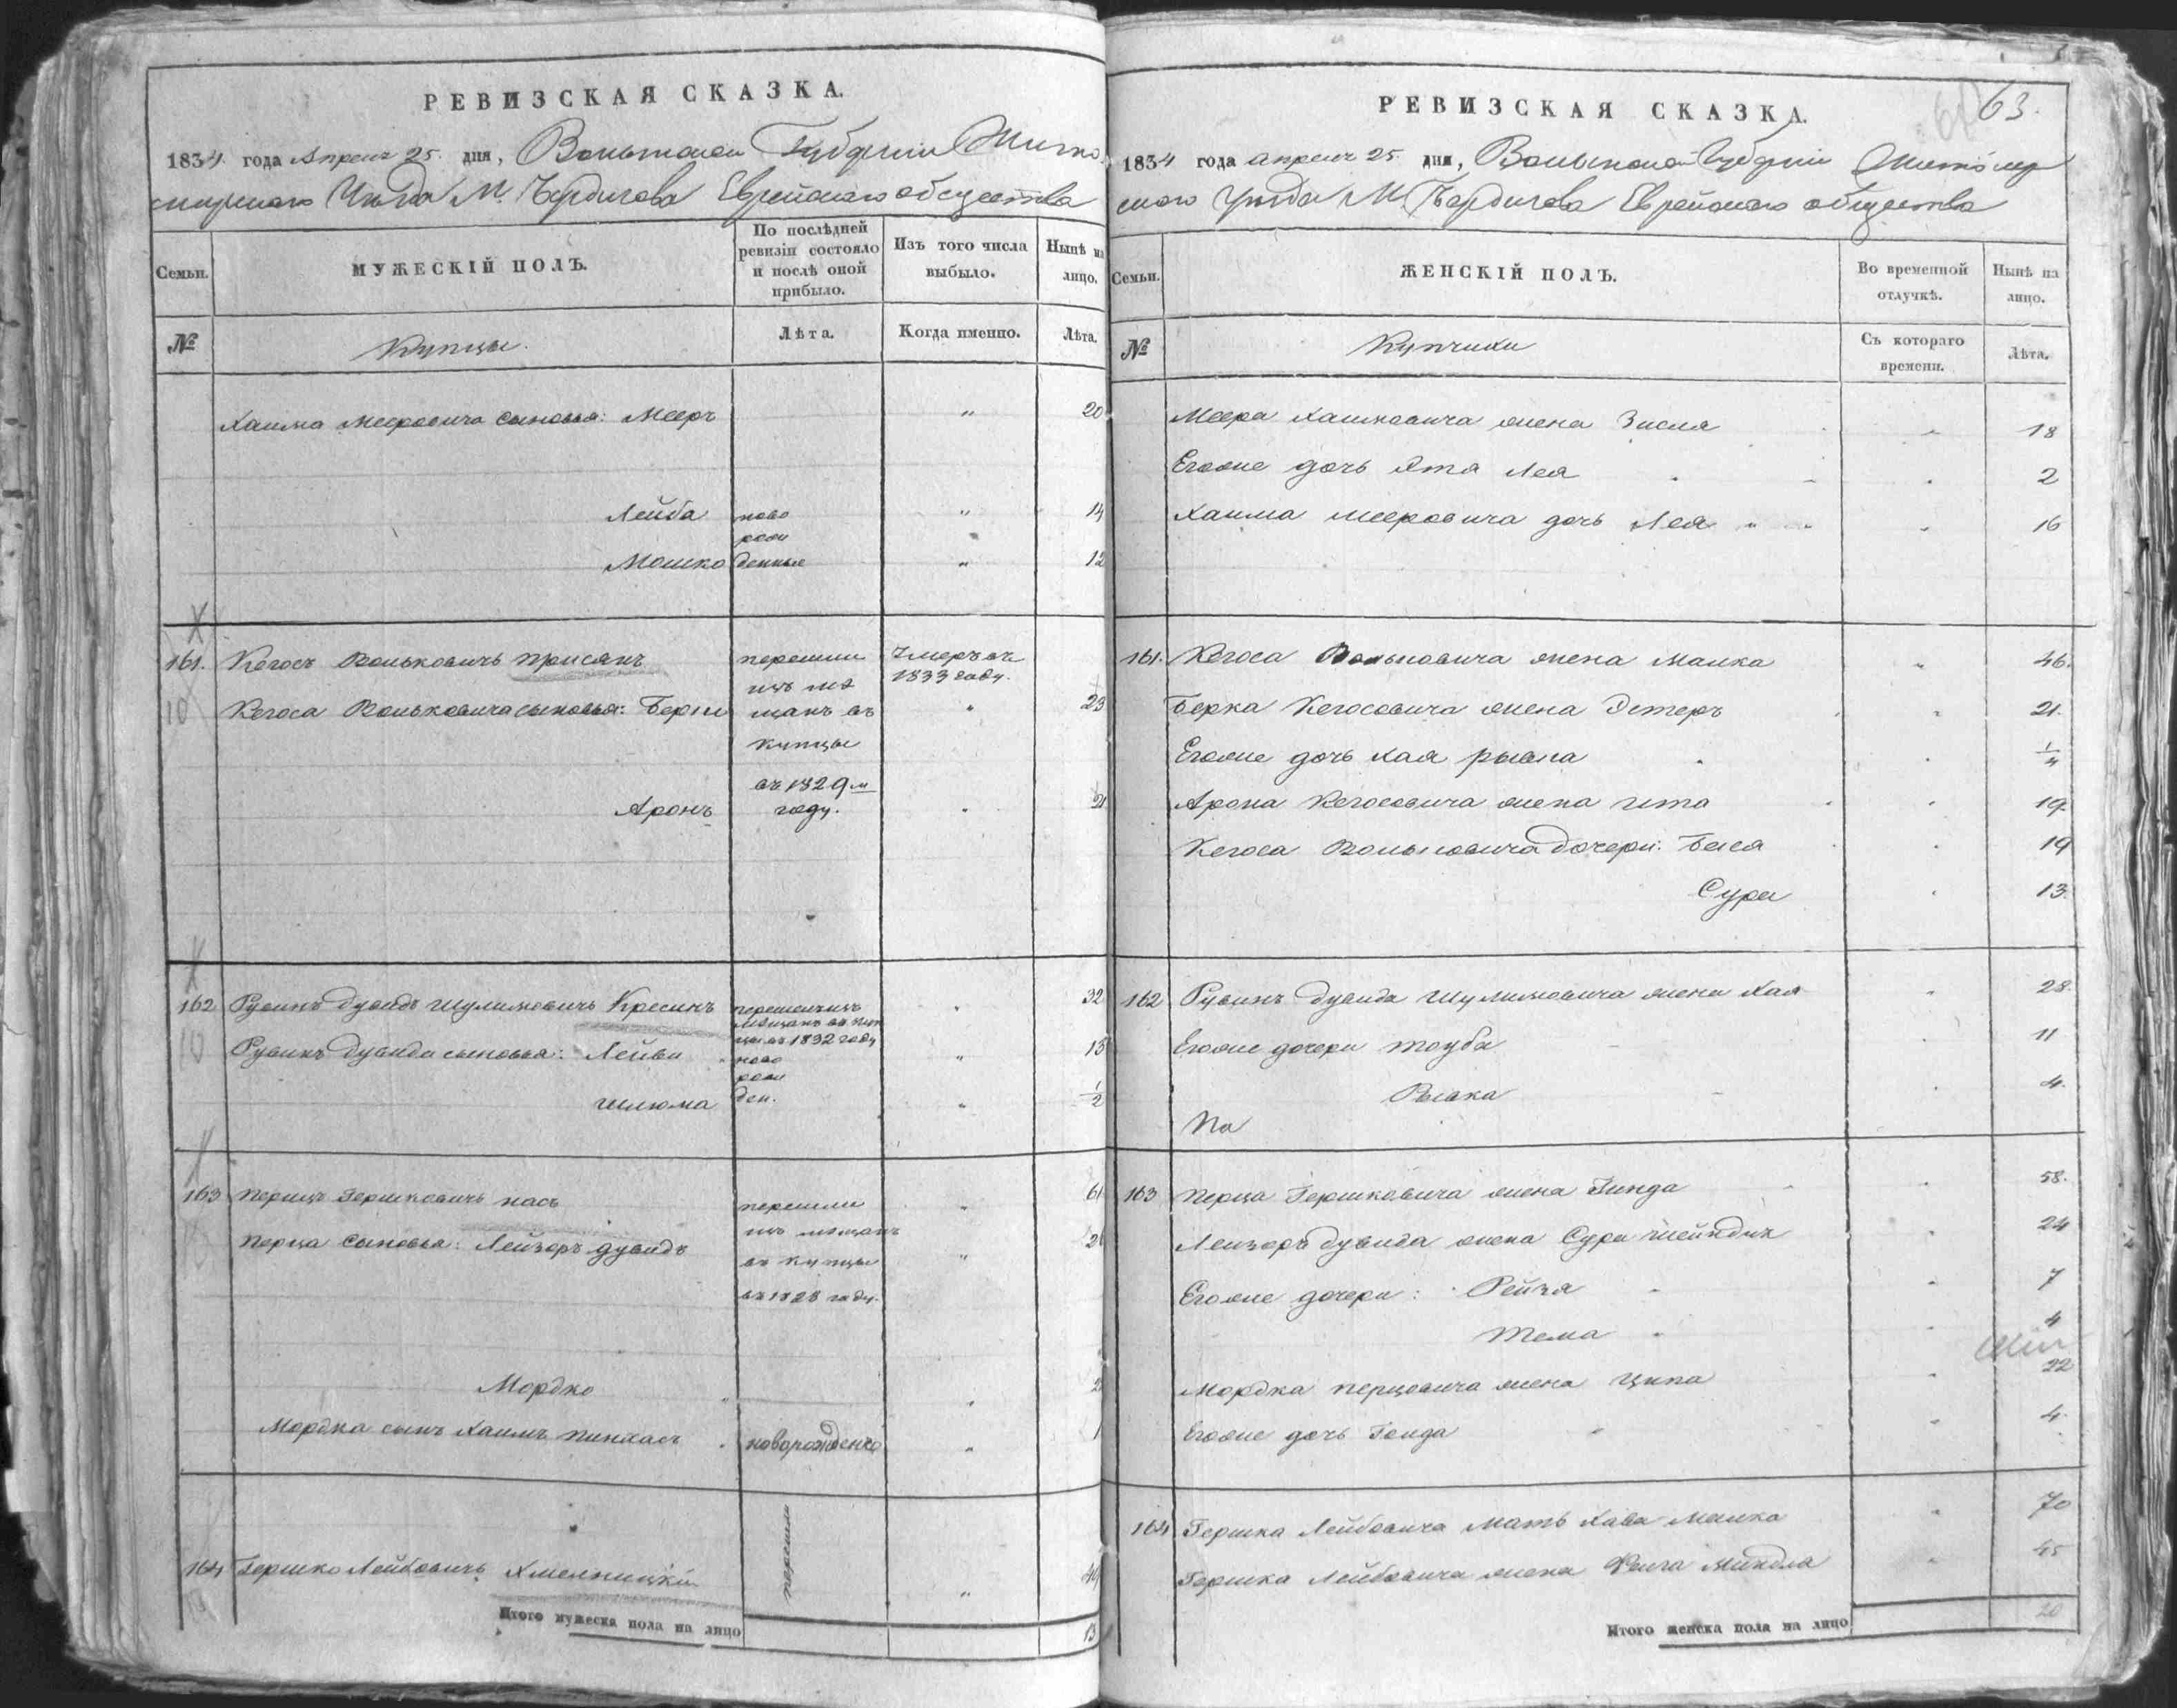 РЕВИЗСКАЯ СКАЗКА.
1834 года Апреля 25. дня, Волынской Губернии Жито-
мирскаго Уезда М. Бердичева Еврейскаго общества
Семьи.
МУЖЕСКІЙ ПОЛЪ.
По послѣдней ревизіи состояло и послѣ оной прибыло.
Изъ того числа выбыло.
Нынѣ на лицо.
№
Купцы.
Лѣта.
Когда именно.
Лѣта.
Хаима Мееровича сыновья: Мееръ " 20
Лейба ново " 14
рож
Мошко денные " 12
161. Кегосъ Вольковичъ перешли Умеръ въ
изъ мѣ 1833 году.
Кегоса Вольковича сыновья: Берко щанъ въ " 23
купцы
въ 1829 м
Аронъ году. " 21
162 Рувинъ Дувидъ Шулимовичъ Кресинъ перешелъ изъ " 32
мещанъ въ куп
цы въ 1832 году
Рувинъ Дувида сыновья: Лейба ново " 13
рож
Шлюма ден. " 1/2
163 Перецъ Гершковичъ перешли " 61
изъ мещанъ
Перца сыновья: Лейзоръ Дувидъ
въ купцы "
въ 1828 году.
Мордко "
Мордка сынъ Хаимъ Пинхасъ новорожденъ " 1
164 Гершко Лейбовичъ Хмельницкій перешли " 49
Итого мужеска пола на лицо 13
РЕВИЗСКАЯ СКАЗКА.
63.
1834 года апреля 25 дня, Волынской Губерніи Житомир
скаго Уезда М. Бердичева Еврейскаго общества
Семьи.
ЖЕНСКІЙ ПОЛЪ.
Во временной отлучкѣ.
Нынѣ на лицо.
№
Купчихи
Съ котораго времени.
Лѣта.
Меера Хаимовича жена Зисля " 18
Егоже дочь Ята Лея " 2
Хаима Мееровича дочь Лея " 16
161. Кегоса Вольковича жена Малка " 46.
Берка Кегосовича жена Эстеръ " 21.
Егоже дочь Хая Рывка " 1/4
Арона Кегосовича жена Ита " 19
Кегоса Вольковича дочери: Бася " 19
Сура " 13.
162 Рувинъ Дувида Шулимовича жена Хая " 28.
Егоже дочери Тоуба " 11
Рывка " 4.
На
163 Перца Гершковича жена Гинда " 58.
Лейзоръ Дувида жена Сура Шейндля " 24
Егоже дочери: Рейзя " 7
Тема " 4
Мордка Перцовича жена Ципа " 22
Егоже дочь Голда " 4.
164 Гершка Лейбовича мать Хава Малка " 70
Гершка Лейбовича жена Фейга Миндля " 45
Итого женска пола на лицо 20